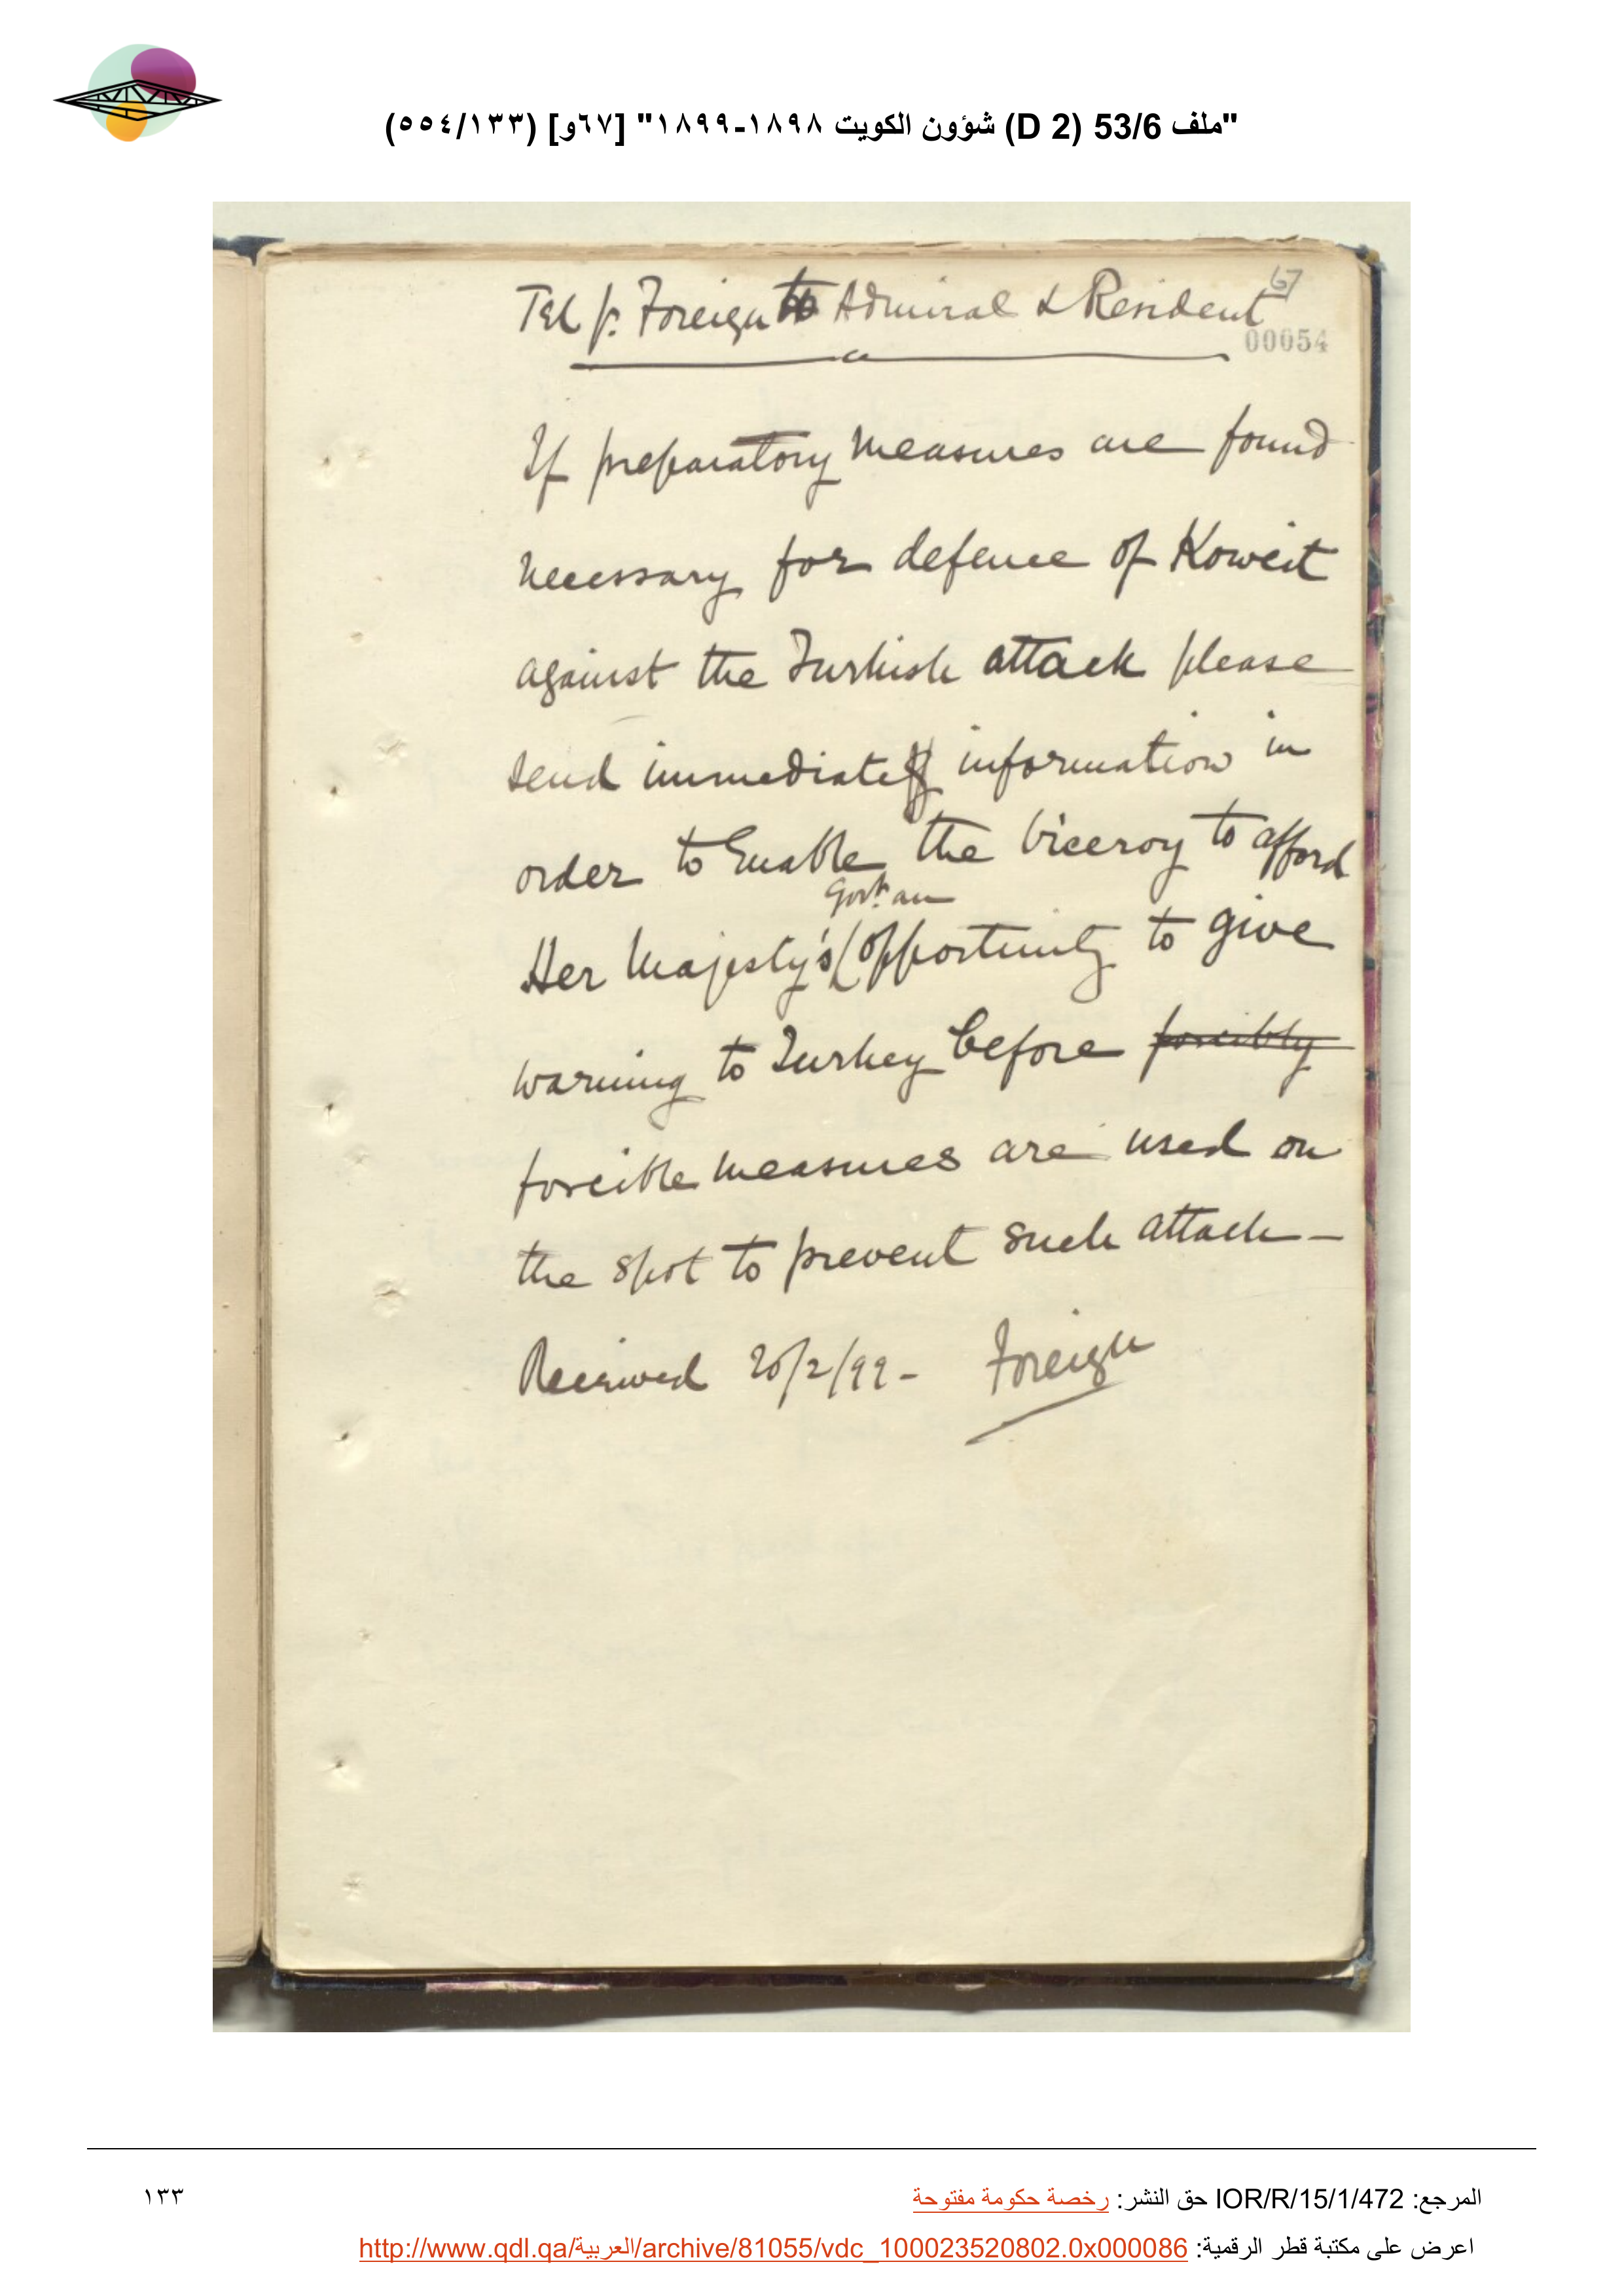 "ملف 53/6 (D 2) شؤون الكويت ١٨٩٨-١٨٩٩" [٦٧و] (٥٥٤/١٣٣)
67
Tel p. Foreign to Admiral & Resident
00054
If preparatory measures are found
necessary for defence of Koweit
against the Turkish attack please
send immediately information in
order to enable the Viceroy to afford
Govt. an
Her Majesty's opportunity to give
warning to Turkey before forcibly
forcible measures are used on
the spot to prevent such attack –
Received 20/2/99 - Foreign
المرجع: IOR/R/15/1/472 حق النشر: رخصة حكومة مفتوحة
١٣٣
اعرض على مكتبة قطر الرقمية: http://www.qdl.qa/العربية/archive/81055/vdc_100023520802.0x000086